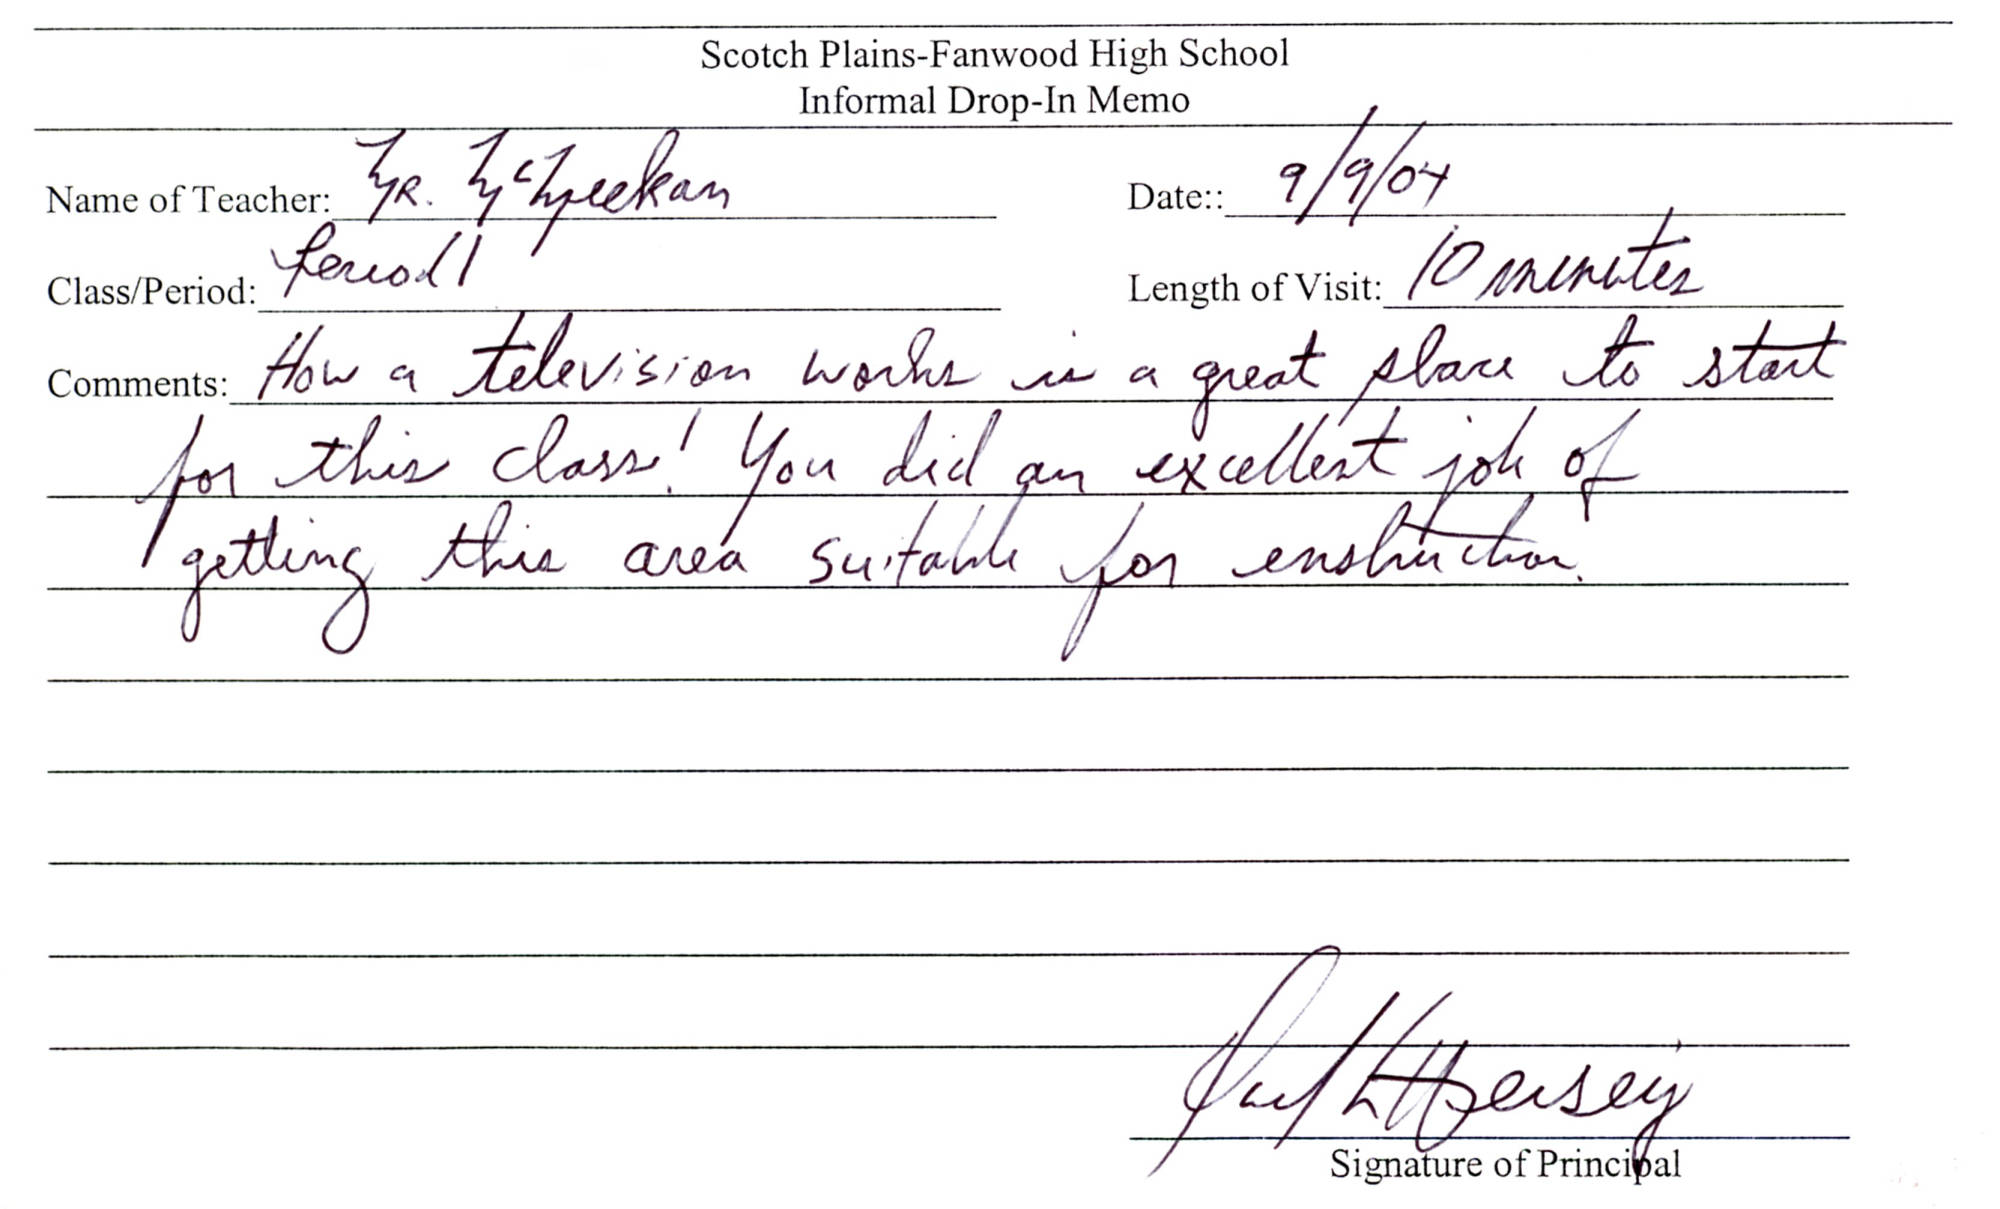 Scotch Plains-Fanwood High School
Informal Drop-In Memo
Name of Teacher: Mr. McMeekan Date:: 9/9/04
Class/Period: Period 1 Length of Visit: 10 minutes
Comments: How a television works is a great place to start
for this class! You did an excellent job of
getting this area suitable for instruction.
Hersey
Signature of Principal